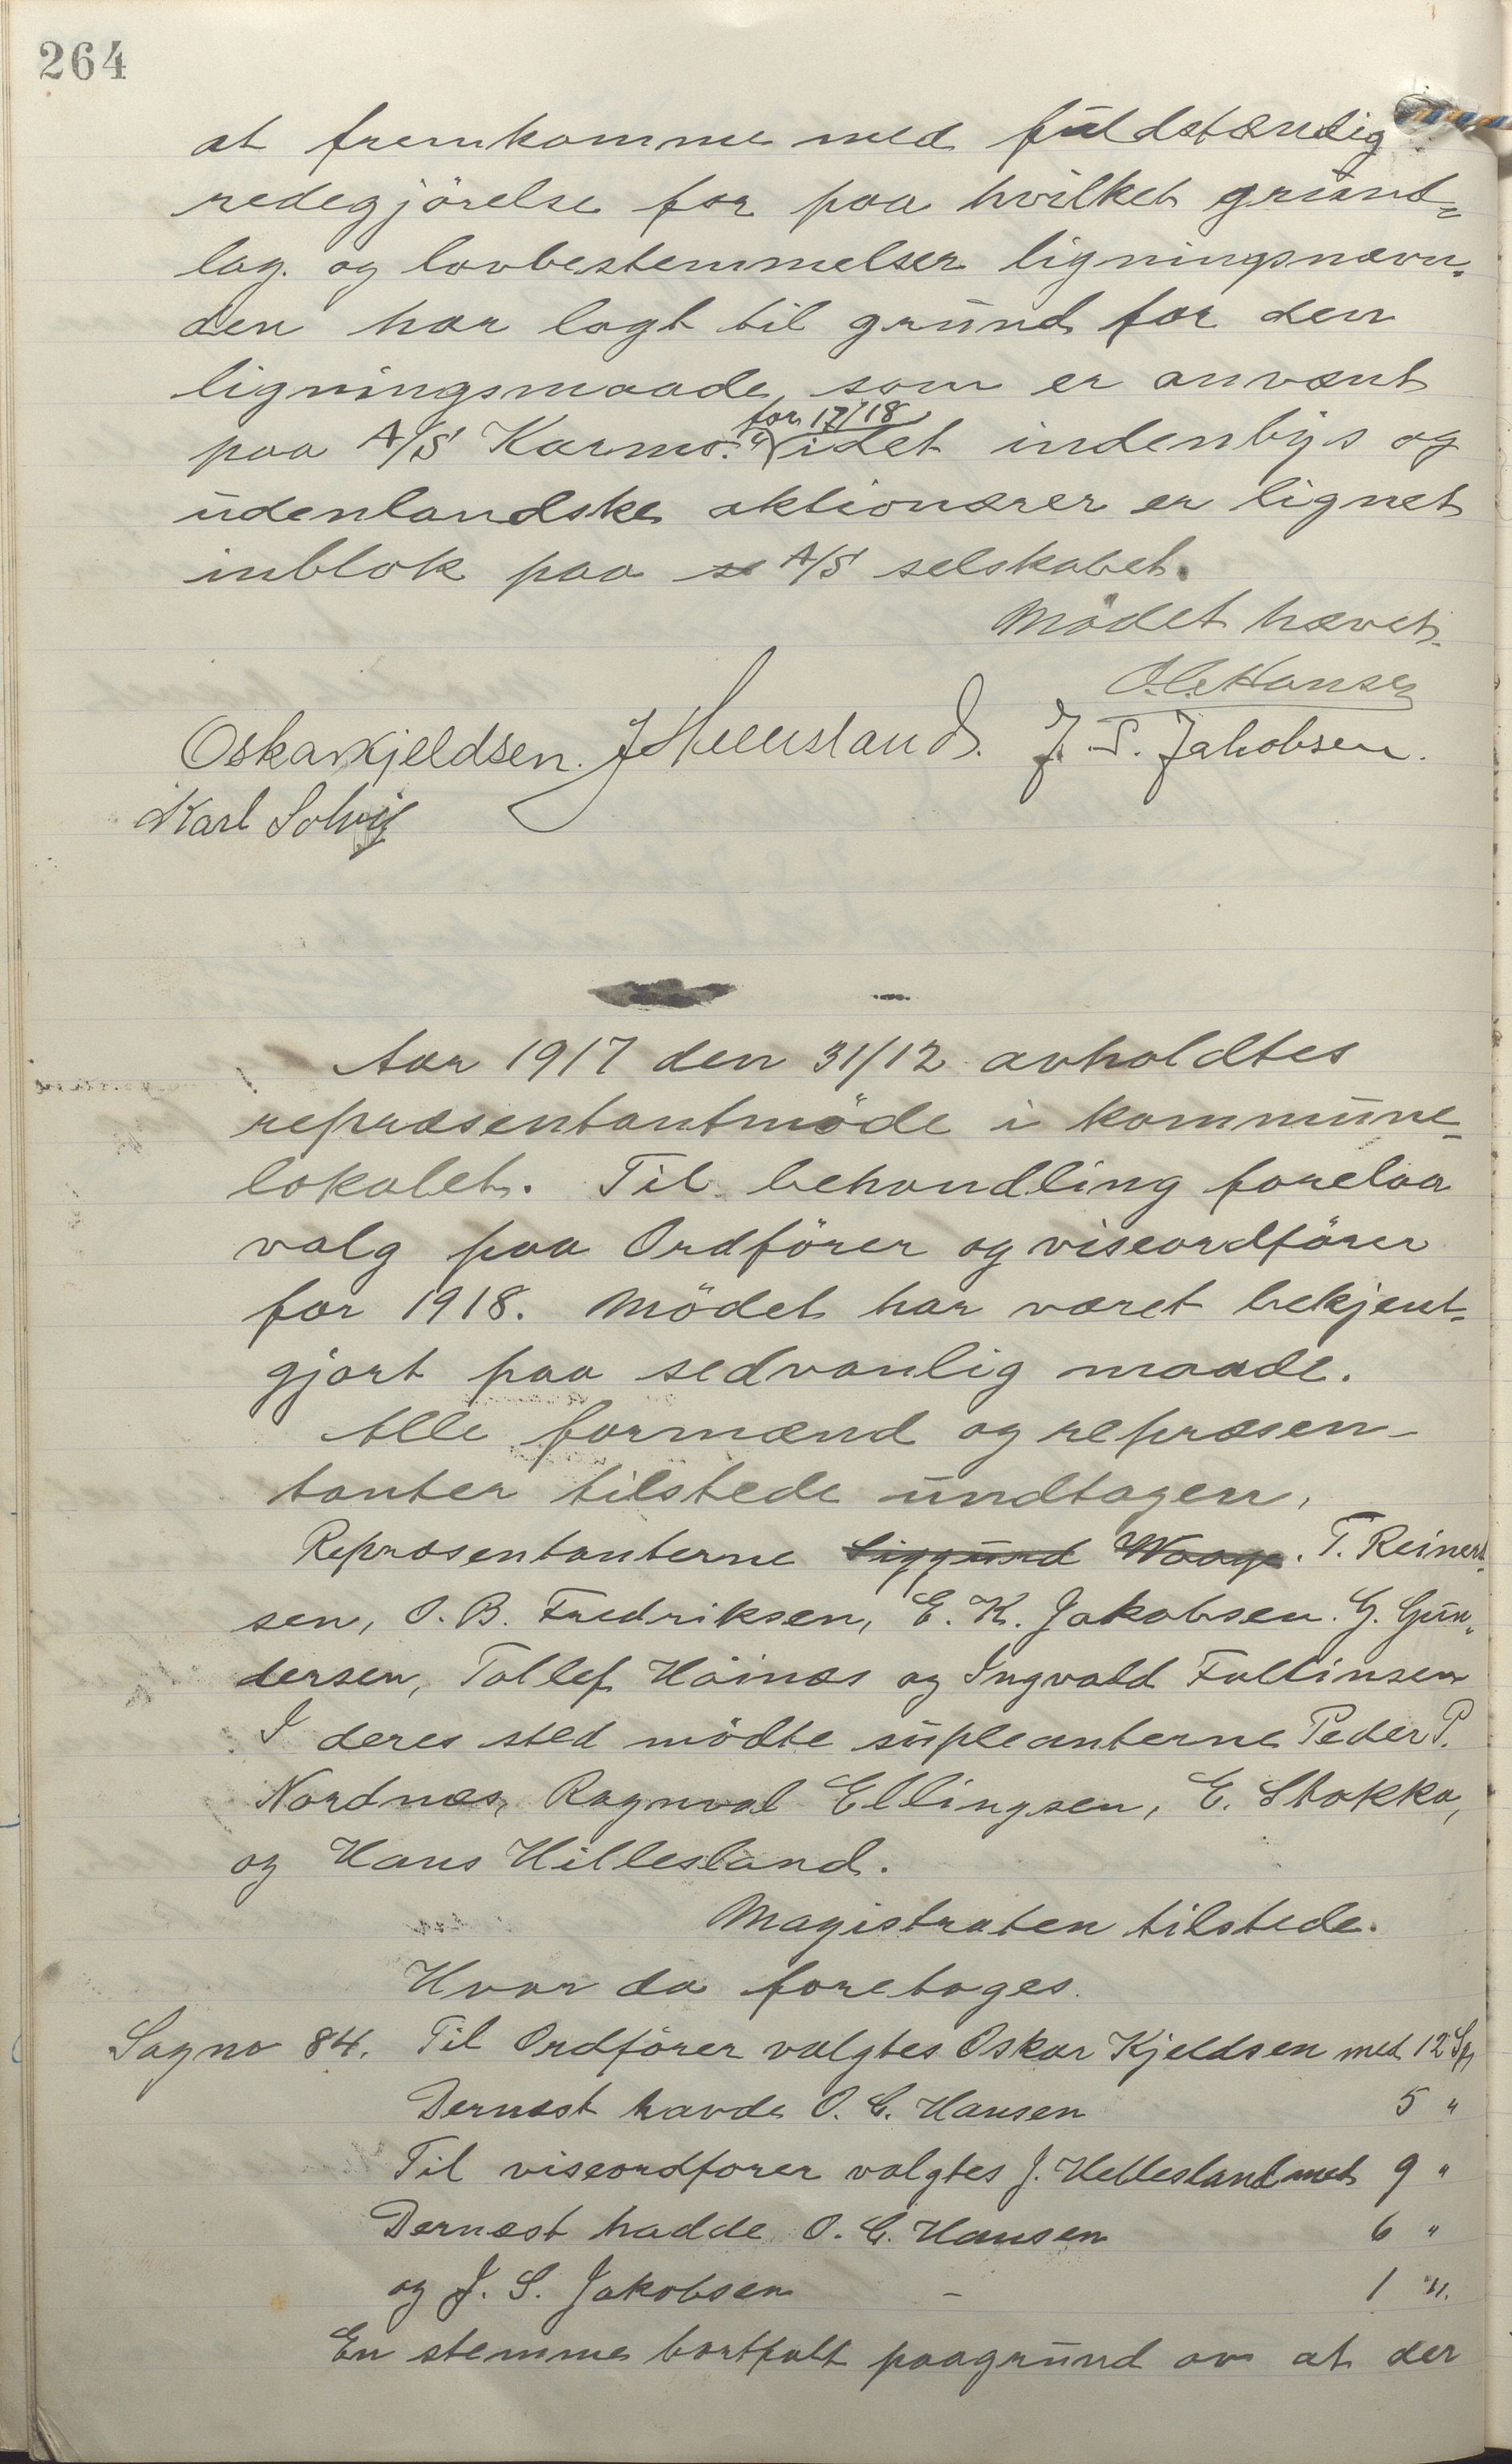 264
at fremkomme med fuldstændig
redegjörelse for paa hvilket grund-
lag og lovbestemmelser ligningsnævn-
den har lagt til grund for den
ligningsmaade som er anvænt
for 17/18
paa A/S Karmø" idet indenbys og
udenlandske aktionærer er lignet
inblok paa se A/S selskabet.
Mödet hævet.
O. C. Hansen
Oskar Kjeldsen. J Hellesland. J. S. Jakobsen.
Karl Solvig
Aar 1917 den 31/12 avholdtes
repræsentantmöde i kommune-
lokalet. Til behandling forelaa
valg paa Ordförer og viseordförer
for 1918. Mödet har været bekjent-
gjort paa sedvanlig maade.
Alle formænd og repræsen-
tanter tilstede undtagen,
Repræsentanterne Siggurd Waage. T. Reinert-
sen, O. B. Fredriksen, E. K. Jakobsen. G. Gun-
dersen, Tollef Höinæs og Ingvald Falkinsen
I deres sted mödte supleanterne Peder P.
Nordnæs, Ragnval Ellingsen, E. Stokka,
og Hans Hillesland.
Magistraten tilstede.
Hvor da foretoges.
Sagno 84. Til Ordförer valgtes Oskar Kjeldsen med 12 St
Dernæst havde O. C. Hansen 5 "
Til viseordforer valgtes J. Hellesland met 9 "
Dernæst hadde O. C. Hansen 6 "
og J. S. Jakobsen - 1 ".
En stemme bortfalt paagrund av at der